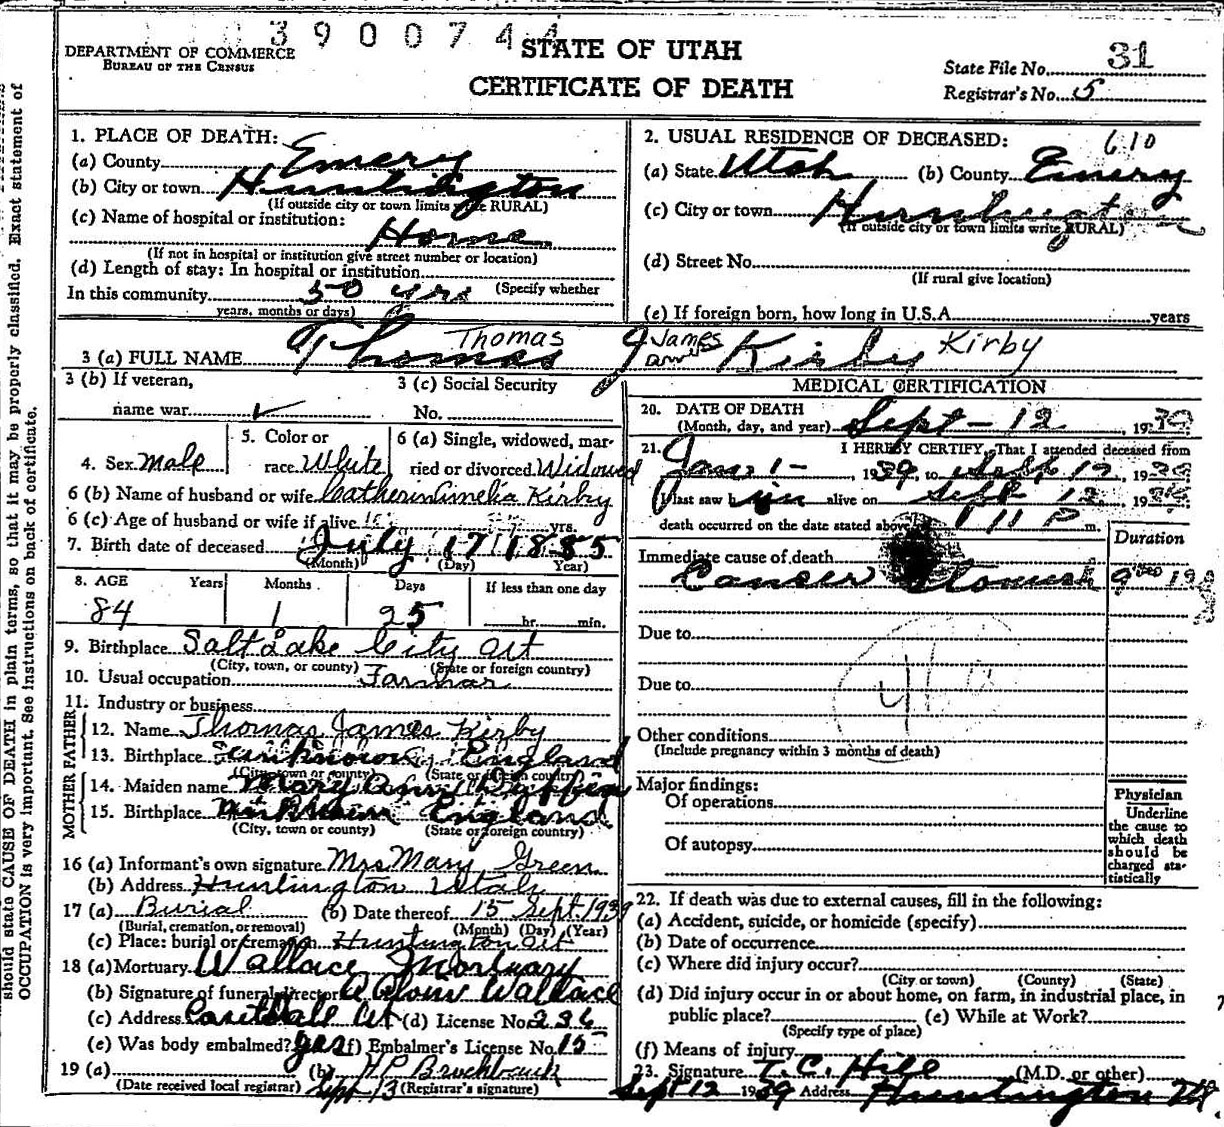 3900744
DEPARTMENT OF COMMERCE
BUREAU OF THE CENSUS
STATE OF UTAH
CERTIFICATE OF DEATH
State File No. 31
Registrar's No. 5
should state CAUSE OF DEATH in plain terms, so that it may be properly classified. Exact statement of
OCCUPATION is very important. See instructions on back of certificate.
1. PLACE OF DEATH:
(a) County Emery
(b) City or town Huntington
(If outside city or town limits write RURAL)
(c) Name of hospital or institution:
Home
(If not in hospital or institution give street number or location)
(d) Length of stay: In hospital or institution
In this community 50 yrs (Specify whether
years, months or days)
2. USUAL RESIDENCE OF DECEASED: 610
(a) State Utah (b) County Emery
(c) City or town Huntington
(If outside city or town limits write RURAL)
(d) Street No.
(If rural give location)
(e) If foreign born, how long in U.S.A. years
Thomas James Kirby
3 (a) FULL NAME Thomas James Kirby
3 (b) If veteran,
name war
3 (c) Social Security
No.
4. Sex Male
5. Color or
race White
6 (a) Single, widowed, mar-
ried or divorced Widowed
6 (b) Name of husband or wife Catherin Amelia Kirby
6 (c) Age of husband or wife if alive yrs.
7. Birth date of deceased July 17 1855
(Month) (Day) Year)
8. AGE Years Months Days If less than one day
84 1 25 hr. min.
9. Birthplace Salt Lake City Ut
(City, town, or county) (State or foreign country)
10. Usual occupation Farmer
11. Industry or business
FATHER
12. Name Thomas James Kirby
13. Birthplace unknown England
(City, town or county) (State or foreign country)
MOTHER
14. Maiden name Mary Ann
15. Birthplace England
(City, town or county) (State or foreign country)
16 (a) Informant's own signature Mrs Mary Green
(b) Address Huntington Utah
17 (a) Burial (b) Date thereof 15 Sept. 1939
(Burial, cremation, or removal) (Month) (Day) (Year)
(c) Place: burial or cremation Huntington Ut
18 (a) Mortuary Wallace Mortuary
(b) Signature of funeral director Wallace
(c) Address Castle Dale Ut (d) License No. 236
(e) Was body embalmed? yes (f) Embalmer's License No. 15
19 (a) Sept 13 (b) H P
(Date received local registrar) (Registrar's signature)
MEDICAL CERTIFICATION
20. DATE OF DEATH
(Month, day, and year) Sept - 12, 1939
21. I HEREBY CERTIFY, That I attended deceased from
Jan 1 -, 1939, to Sept 12, 1939
I last saw him alive on Sept 12 1939
death occurred on the date stated above 11 P m.
Duration
Immediate cause of death
Cancer Stomach
Due to
Due to
Other conditions
(Include pregnancy within 3 months of death)
Major findings:
Of operations
Of autopsy
Physician
Underline
the cause to
which death
should be
charged sta-
tistically
22. If death was due to external causes, fill in the following:
(a) Accident, suicide, or homicide (specify)
(b) Date of occurrence
(c) Where did injury occur?
(City or town) (County) (State)
(d) Did injury occur in or about home, on farm, in industrial place, in
public place? (e) While at Work?
(Specify type of place)
(f) Means of injury
23. Signature T. C. Hill (M.D. or other)
Sept 12 1939 Address Huntington Ut